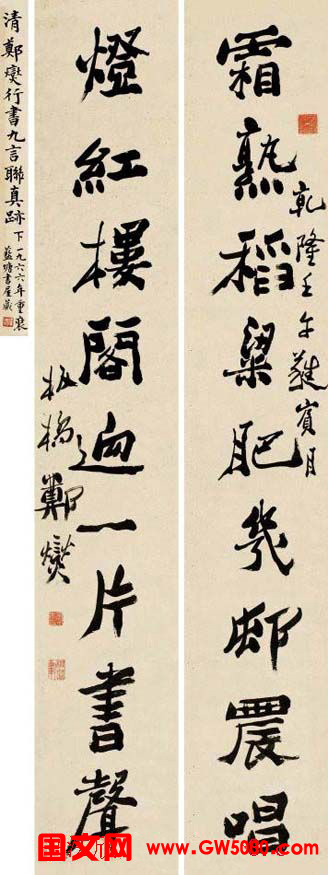 霜熟稻粱肥幾邨農唱
乾隆壬午蕤賓月
燈紅樓閣迥一片書聲
板橋鄭燮
清鄭燮行書九言聯真跡
下一九六六年重裝
藍塘書屋藏
国文网 www.GW5080.com